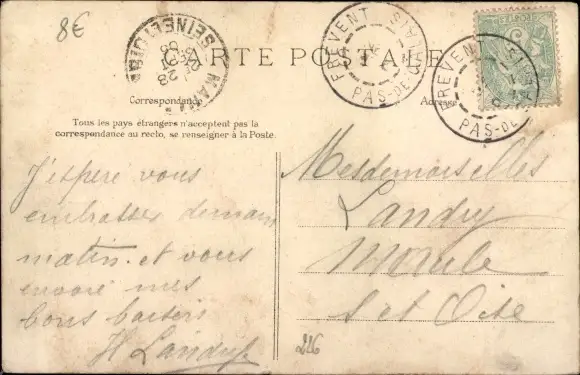 8€
CARTE POSTALE
FREVENT
PAS-DE-CALAIS
FREVENT
PAS-DE-
SEINE-ET-OISE
28
Correspondance
Adresse
Tous les pays étrangers n'acceptent pas la
correspondance au recto, se renseigner à la Poste.
J'espère vous
embrasser demain
matin. et vous
envoie mes
bons baisers
H Landry
Mesdemoiselles
Landry
Maule
S et Oise
216